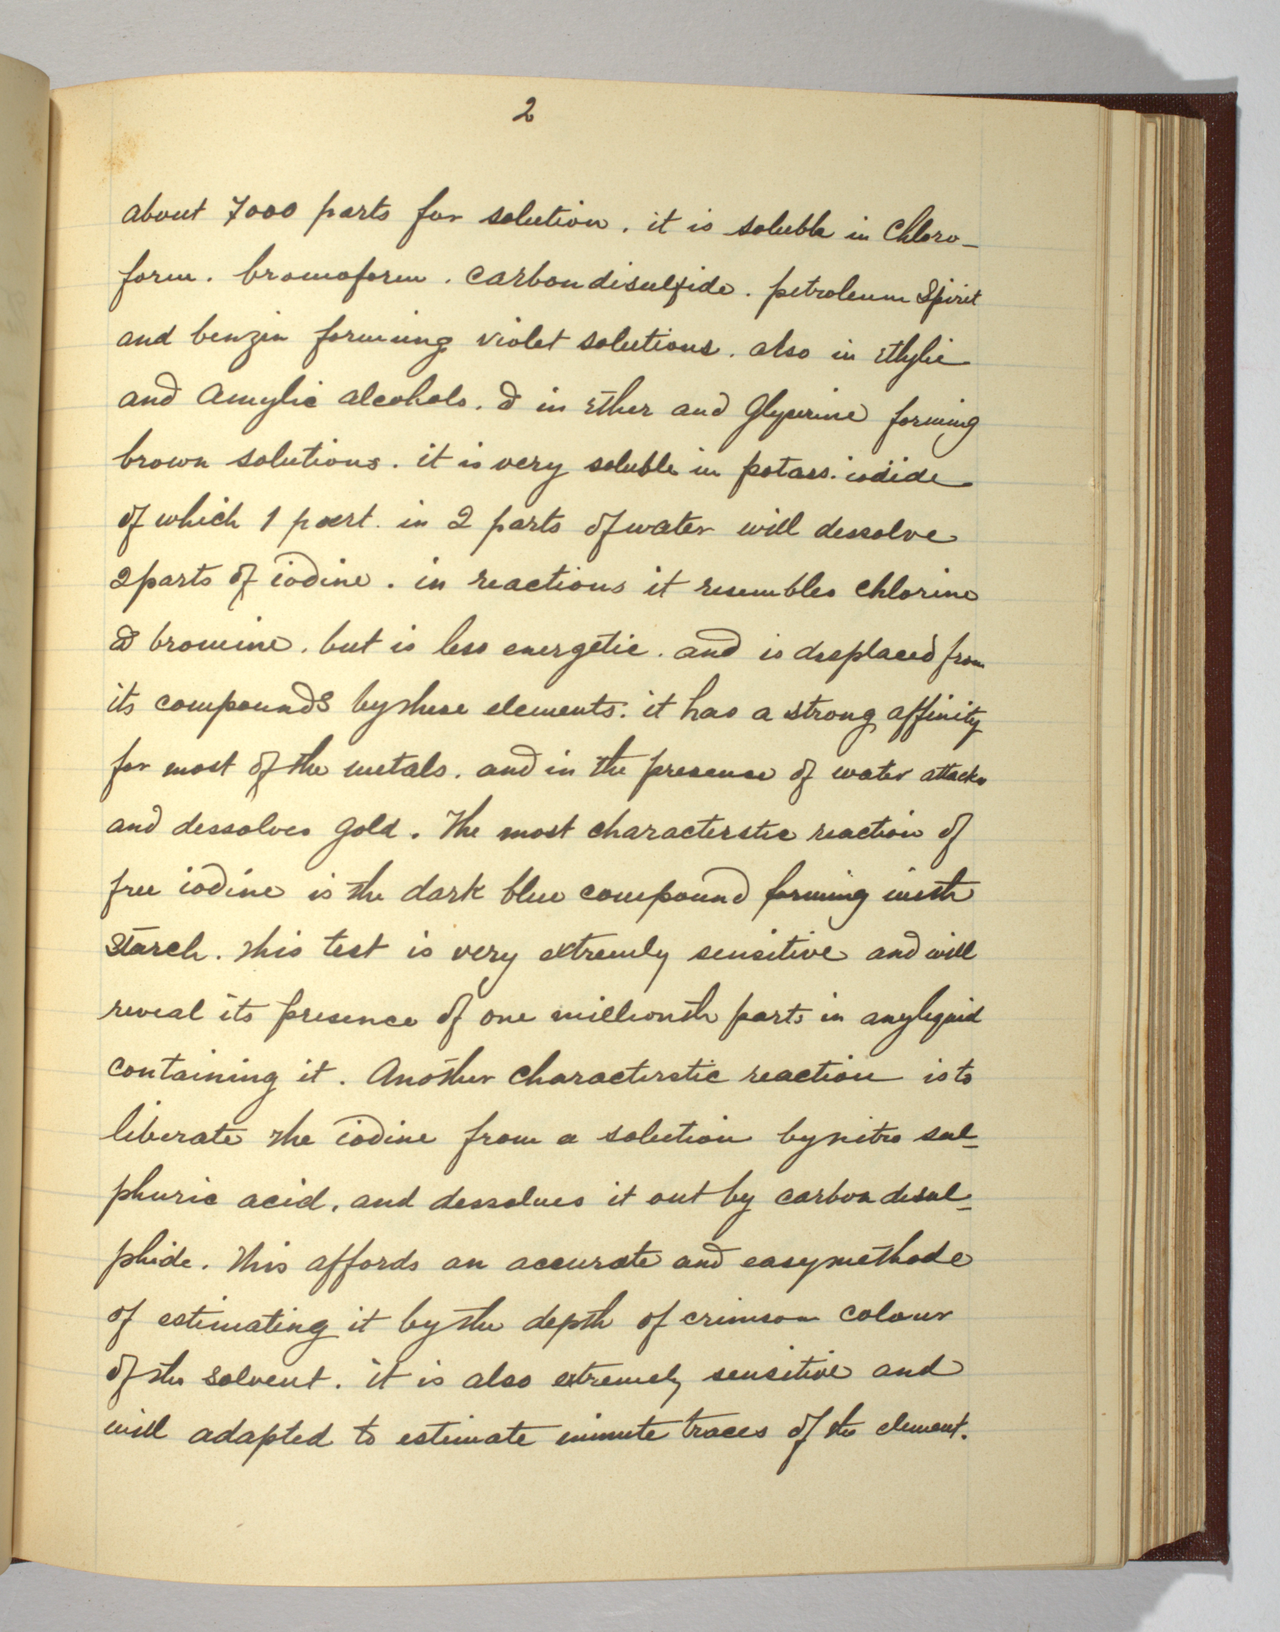 2
about 7000 parts for solution. it is soluble in Chloro-
form. bromoform. carbon disulfide. petroleum Spirit
and benzin forming violet solutions. also in Ethylic
and Amylic alcohols. & in Ether and Glycerine forming
brown solutions. it is very soluble in potass. iodide
of which 1 part in 2 parts of water will dessolve
2 parts of iodine. in reactions it resembles chlorine
& bromine. but is less energetic. and is desplaced from
its compounds by these elements. it has a strong affinity
for most of the metals. and in the presense of water attacks
and dessolves gold. The most characterstic reaction of
free iodine is the dark blue compound forming with
Starch. This test is very extremly sensitive and will
reveal its presence of one millionth parts in any liquid
containing it. Another characterstic reaction is to
liberate the iodine from a solution by nitro sul-
phuric acid, and dessolves it out by carbon disul-
phide. This affords an accurate and easy methode
of estimating it by the depth of crimson colour
of the solvent. it is also extremely sensitive and
will adapted to estimate minute traces of the element.